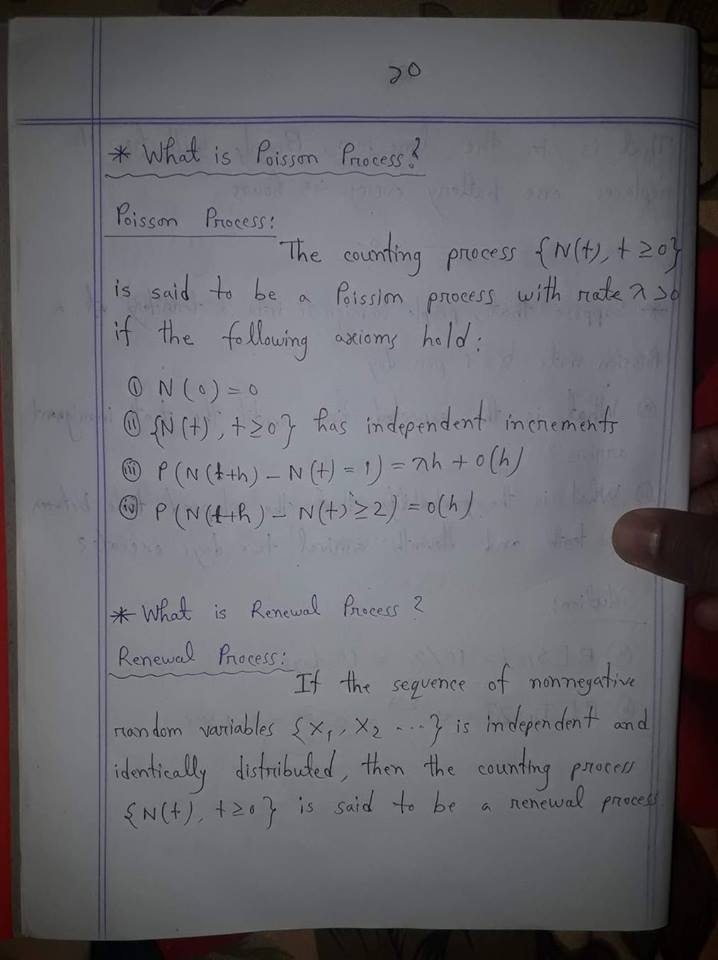 20
* What is Poisson Process?
Poisson Process:
The counting process {N(t), t ≥ 0}
is said to be a Poission process with rate λ > 0
if the following axioms hold:
(i) N(0) = 0
(ii) {N(t), t ≥ 0} has independent increments
(iii) P(N(t+h) – N(t) = 1) = λh + o(h)
(iv) P(N(t+h) – N(t) ≥ 2) = o(h)
* What is Renewal Process ?
Renewal Process:
If the sequence of nonnegative
random variables {X₁, X₂ ...} is independent and
identically distributed, then the counting process
{N(t), t ≥ 0} is said to be a renewal process